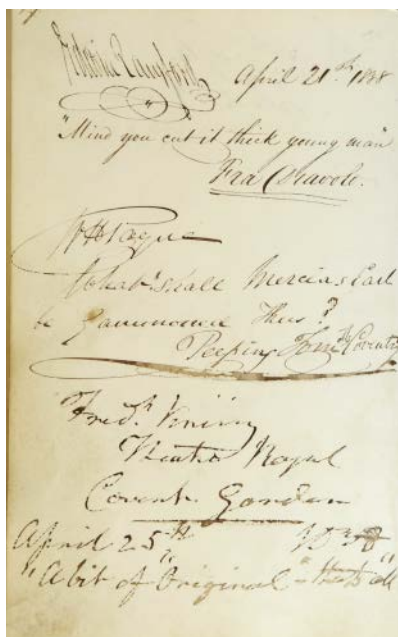 Edwin Ransford April 21st 1838
"Mind you cut it thick young man"
Fra Diavolo.
W H Payne
What! shall Mercia's Earl
be Gammoned thus?
Peeping Tom of Coventry
Fredk Vining
Theatre Royal
Covent Garden
April 25th
"A bit of Original" that's all